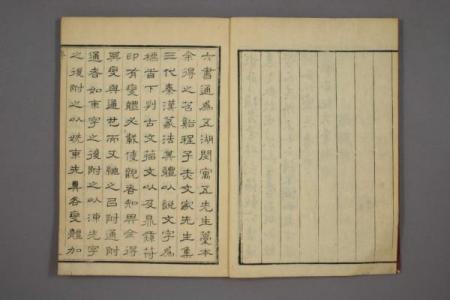 六書通為五湖閔寓五先生藁本
余得之苕谿程子赤文家先生集
三代秦漢篆法異體以說文字為
標首下列古文籀文以及鼎彝符
印有變體必載使觀者知異得
異變與通也而又繼之㠯附通附
通者如東字之後附之以涷先字
之後附之以姺東先具各變體加